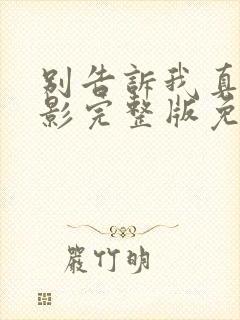 别告訴我真
影完整版免
嚴竹明